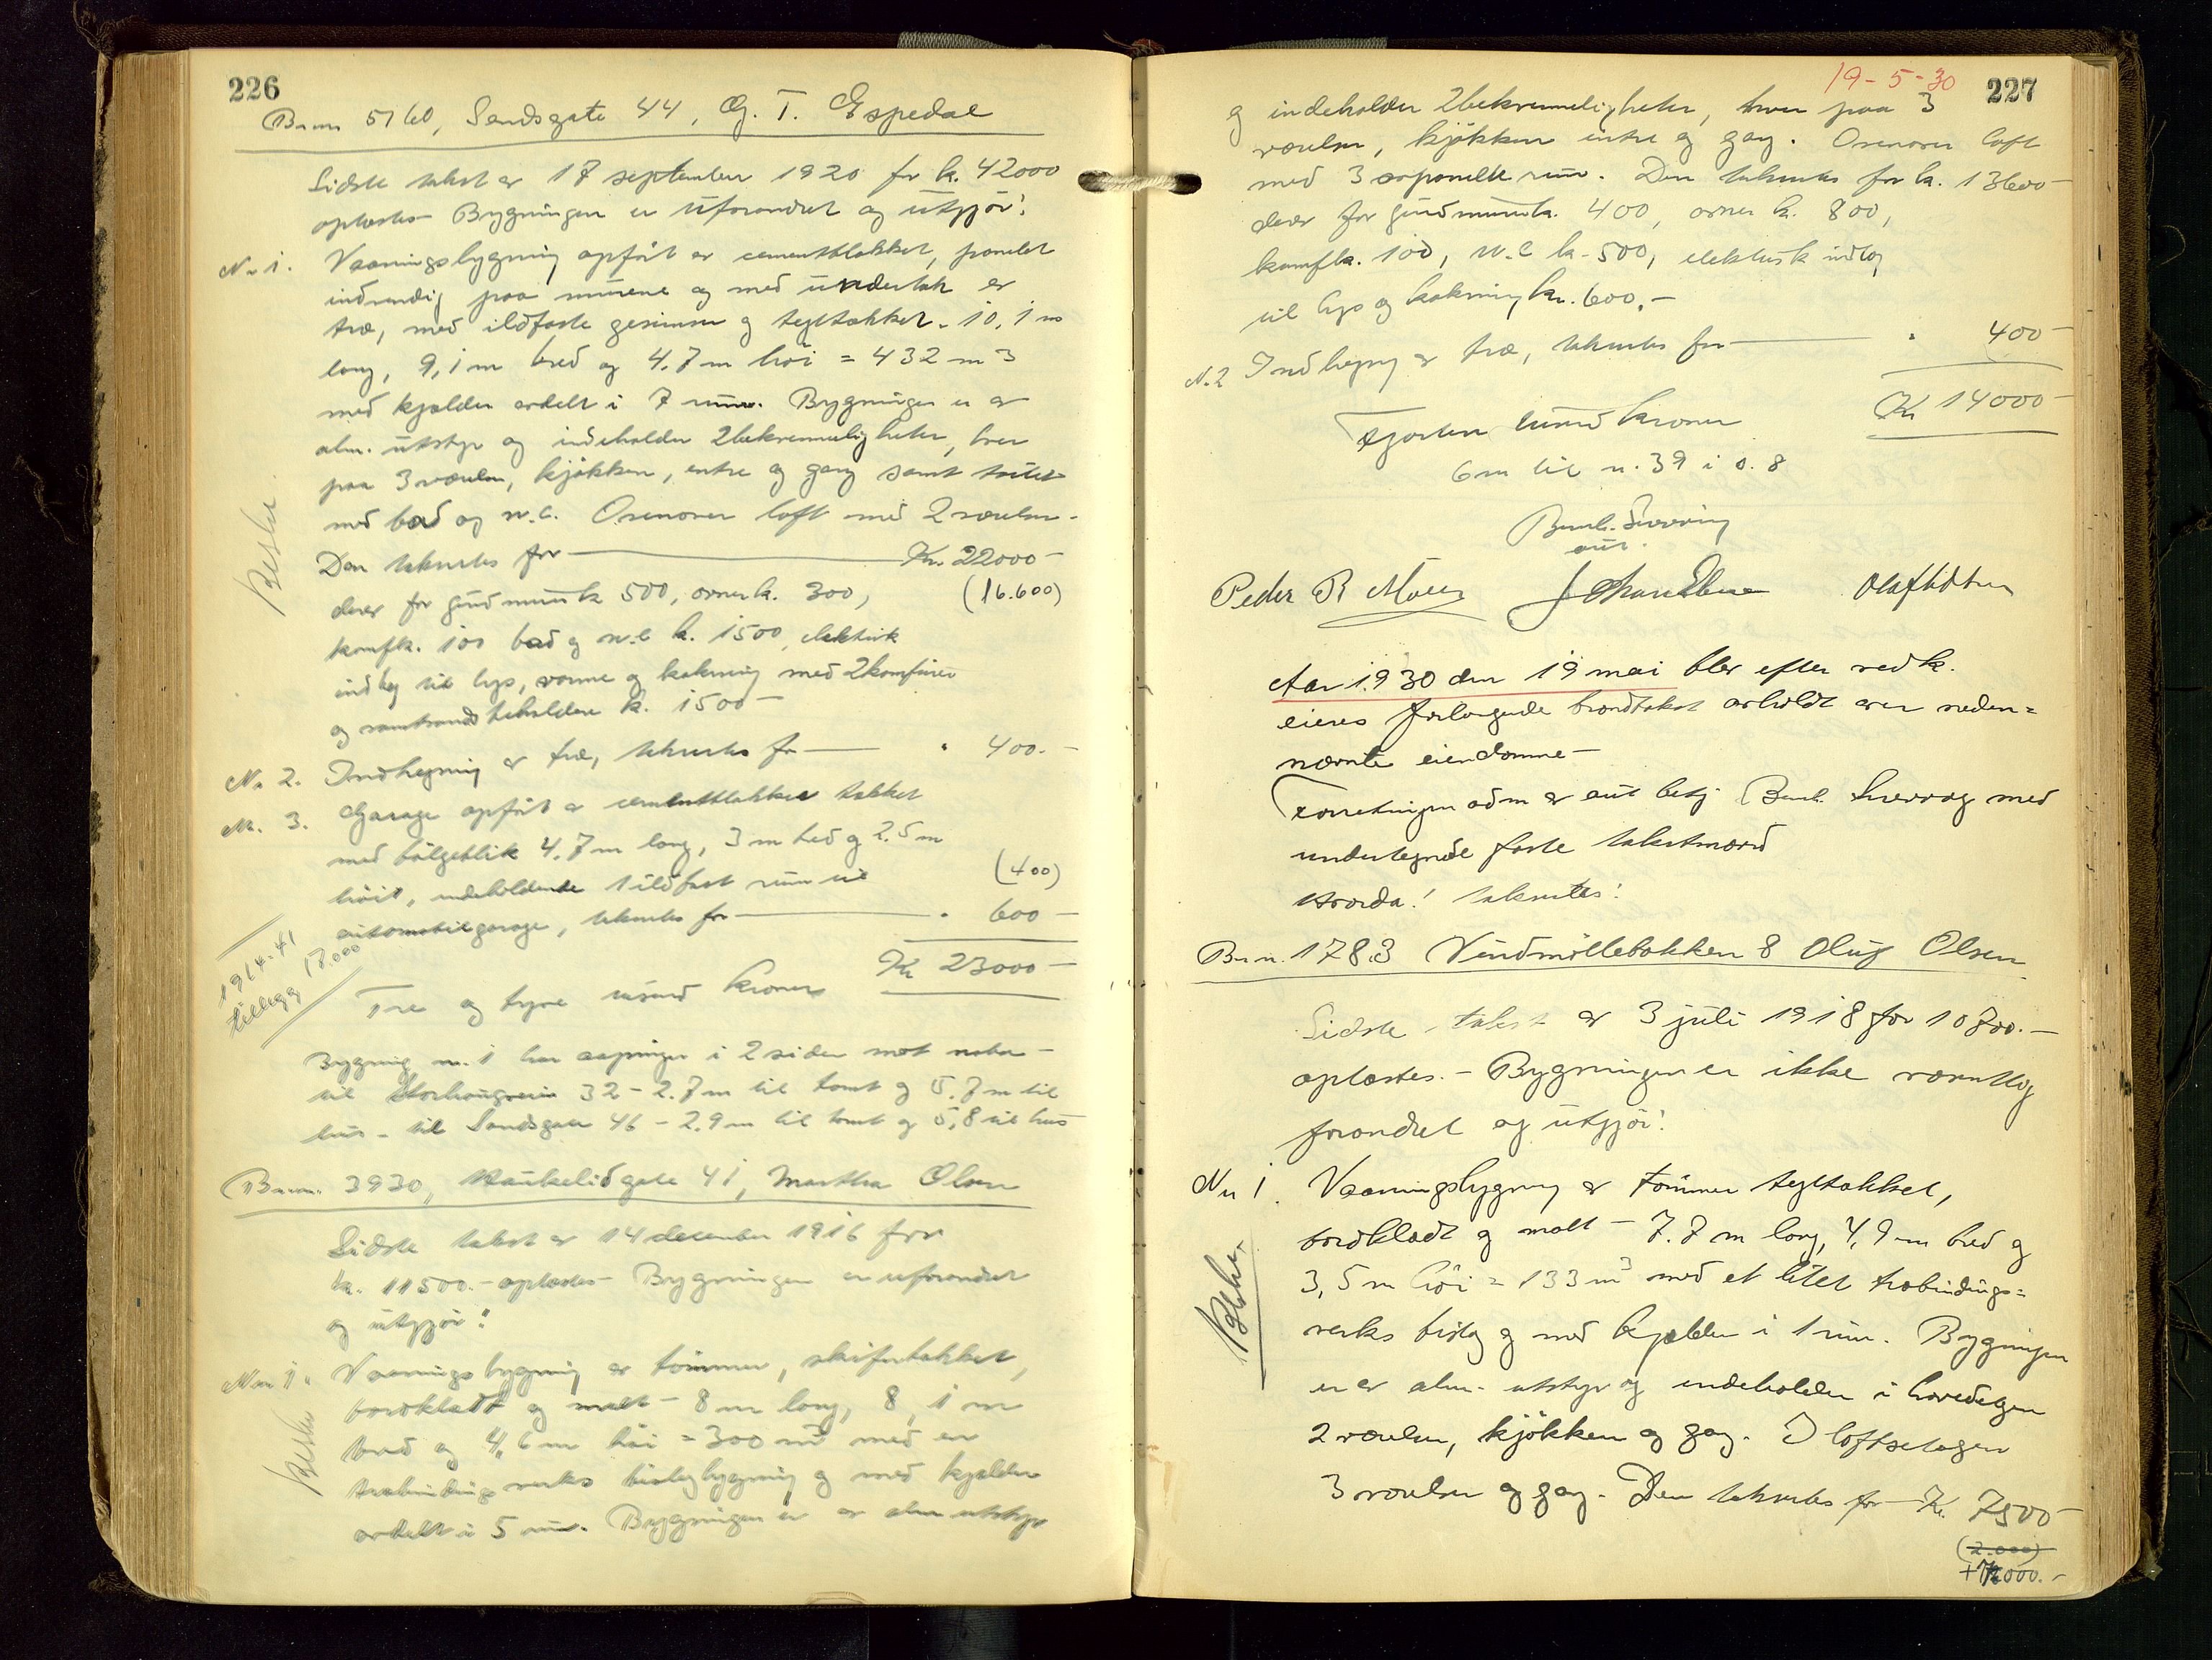 226
Br.nr. 5760, Sandsgate 44, G. T. Espedal
Sidste takst er 17 september 1920 for k. 42000
oplæstes – Bygningen er uforandret og utgjör:
Nr 1. Vaaningsbygning opfört av cementblokker, panelet
indvendig paa murene og med undertak av
træ, med ildfaste gesimser og tegltækket. 10,1 m
lang, 9,1 m bred og 4.7 m höi = 432 m3
med kjælder avdelt i 7 rum. Bygningen er av
alm. utstyr og indeholder 2 bekvemmeligheter, hver
paa 3 værelser, kjökken, entre og gang samt
med bad og w.c. Ovenover loft med 2 værelser.
Den takseres for Kr. 22000 –
derav for grundmur k 500, ovner k. 300, (16.600)
komf k. 100 bad og w.c k. 1500, elektrisk
indlæg til lys, varme og kokning med 2 komfurer
og varmtvandsbeholdere k. 1500 –
Nr 2. Indhegning av træ, takseres for " 400. –
Nr. 3. Garage opfört av cementblokker tækket
med bölgeblik 4.7 m lang, 3 m bred og 2.5 m
höit, indeholdende 1 ildfast rum til (400)
automobilgarage, takseres for " 600 –
Kr 23000 –
Tre og tyve tusind kroner
Beskr.
1914-41
tillegg 17.000
Bygning nr. 1 har aapninger i 2 sider mot nabo –
til Storhaugveien 32 – 2.7 m til tomt og 5.7 m til
hus – til Sandsgate 46 – 2.9 m til tomt og 5,8 til hus
Br.nr. 3930, Haukelidgate 41, Martha Olsen
Sidste takst er 14 december 1916 for
k. 11500. – oplæstes – Bygningen er uforandret
og utgjör:
Nr 1. Vaaningsbygning av tömmer, skifertækket,
bordklædt og malt – 8 m lang, 8,1 m
bred og 4,6 m höi = 300 m3 med en
træbindingsverks bislagbygning og med kjælder
avdelt i 5 rum. Bygningen er av alm utstyr
Beskr
19-5-30 227
og indeholder 2 bekvemmeligheter, hver paa 3
værelser, kjökken entre og gang. Ovenover loft
med 3 avpanelte rum. Den takseres for k. 13600 –
derav for grundmur k. 400, ovner k. 800,
komf k. 100, w.c k. 500, elektrisk indlæg
til lys og kokning kr. 600. –
N. 2 Indhegning av træ, takseres for " 400 –
Kr 14000 –
Fjorten tusind kroner
6 m til n. 39 i ö. 8
Bernh. Sværing
aut.
Peder R Möller Johan Olsen Olaf
Aar 1930 den 19 mai blev efter vedk.
eieres forlangende brandtakst avholdt over neden=
nævnte eiendomme –
Forretningen adm av aut betj. Bernh. Sværing med
undertegnede faste takstmænd
Hvorda: takseres:
Br.nr. 1783 Vindmöllebakken 8 Oluf Olsen
Sidste takst er 3 juli 1918 for 10700. –
oplæstes. – Bygningen er ikke væsentlig
forandret og utgjör:
Nr 1. Vaaningsbygning av tömmer tegltækket,
bordklædt og malt – 7.7 m lang, 4,9 m bred og
3,5 m höi = 133 m3 med et litet træbindings=
verks bislag og med kjælder i 1 rum. Bygningen
er av alm. utstyr og indeholder i hovedetagen
2 værelser, kjökken og gang. I loftsetagen
3 værelser og gang. Den takseres for Kr. 7500 –
(2.000)
Beskr.